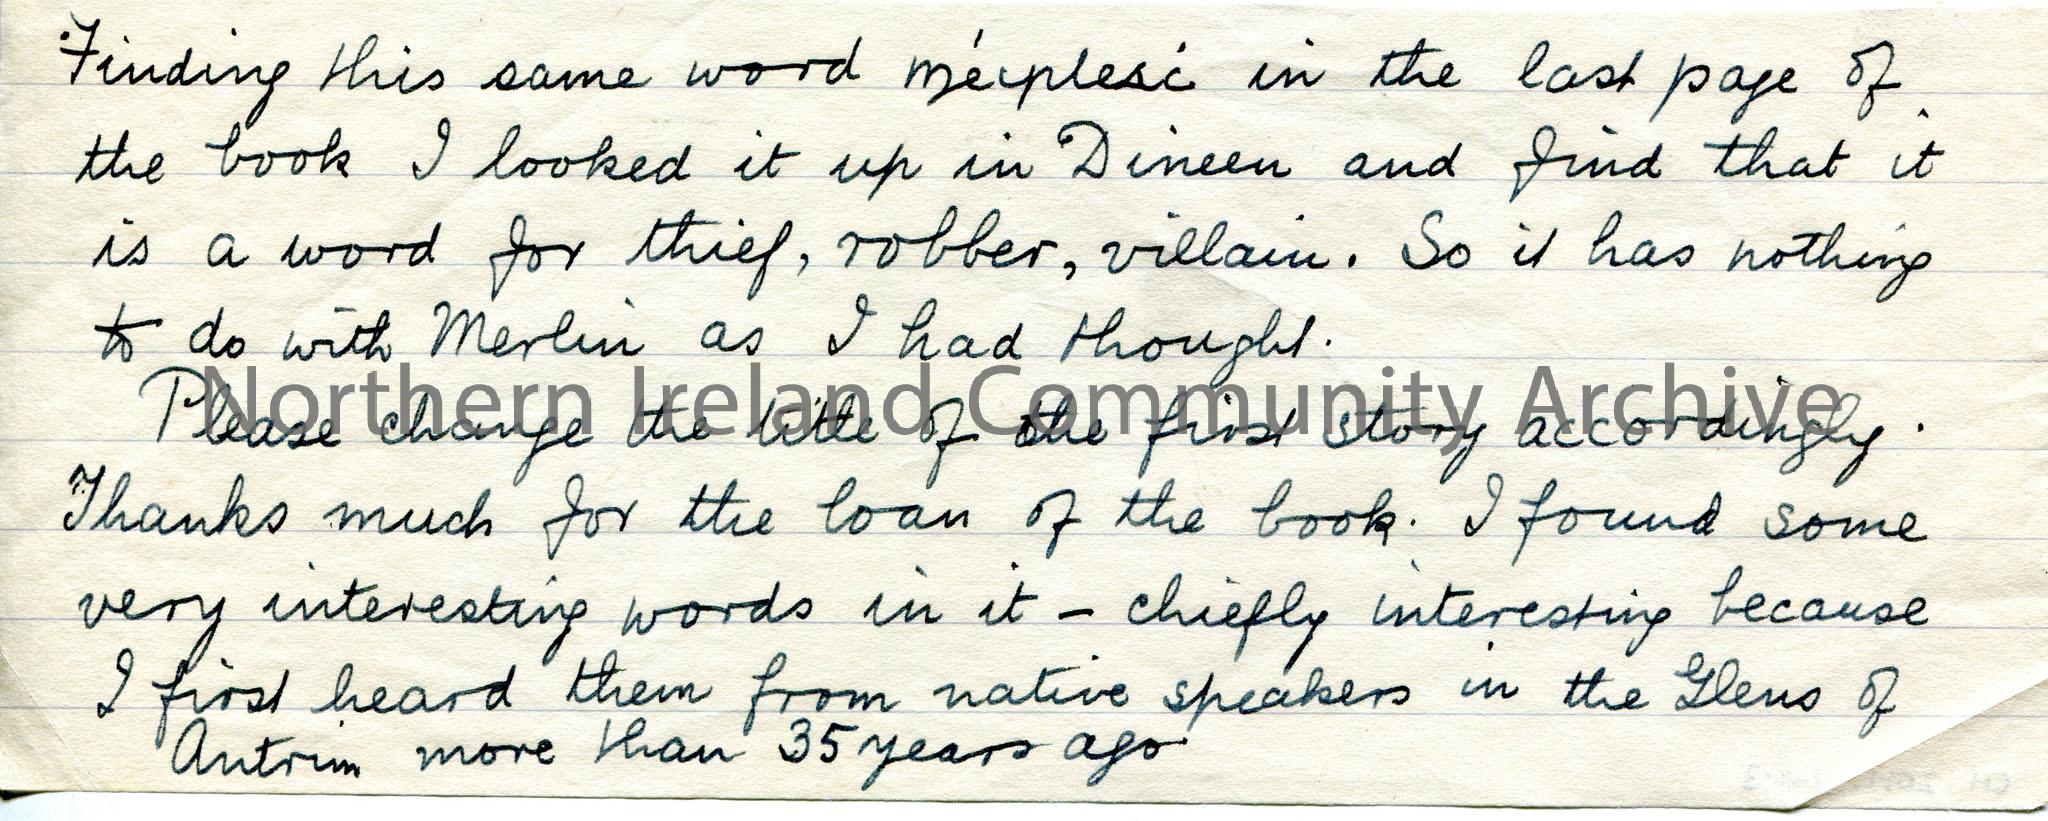 Finding this same word méirleać in the last page of
the book I looked it up in Dineen and find that it
is a word for thief, robber, villain. So it has nothing
to do with Merlin as I had thought.
Northern Ireland Community Archive
Please change the title of the first story accordingly.
Thanks much for the loan of the book. I found some
very interesting words in it – chiefly interesting because
I first heard them from native speakers in the Glens of
Antrim more than 35 years ago